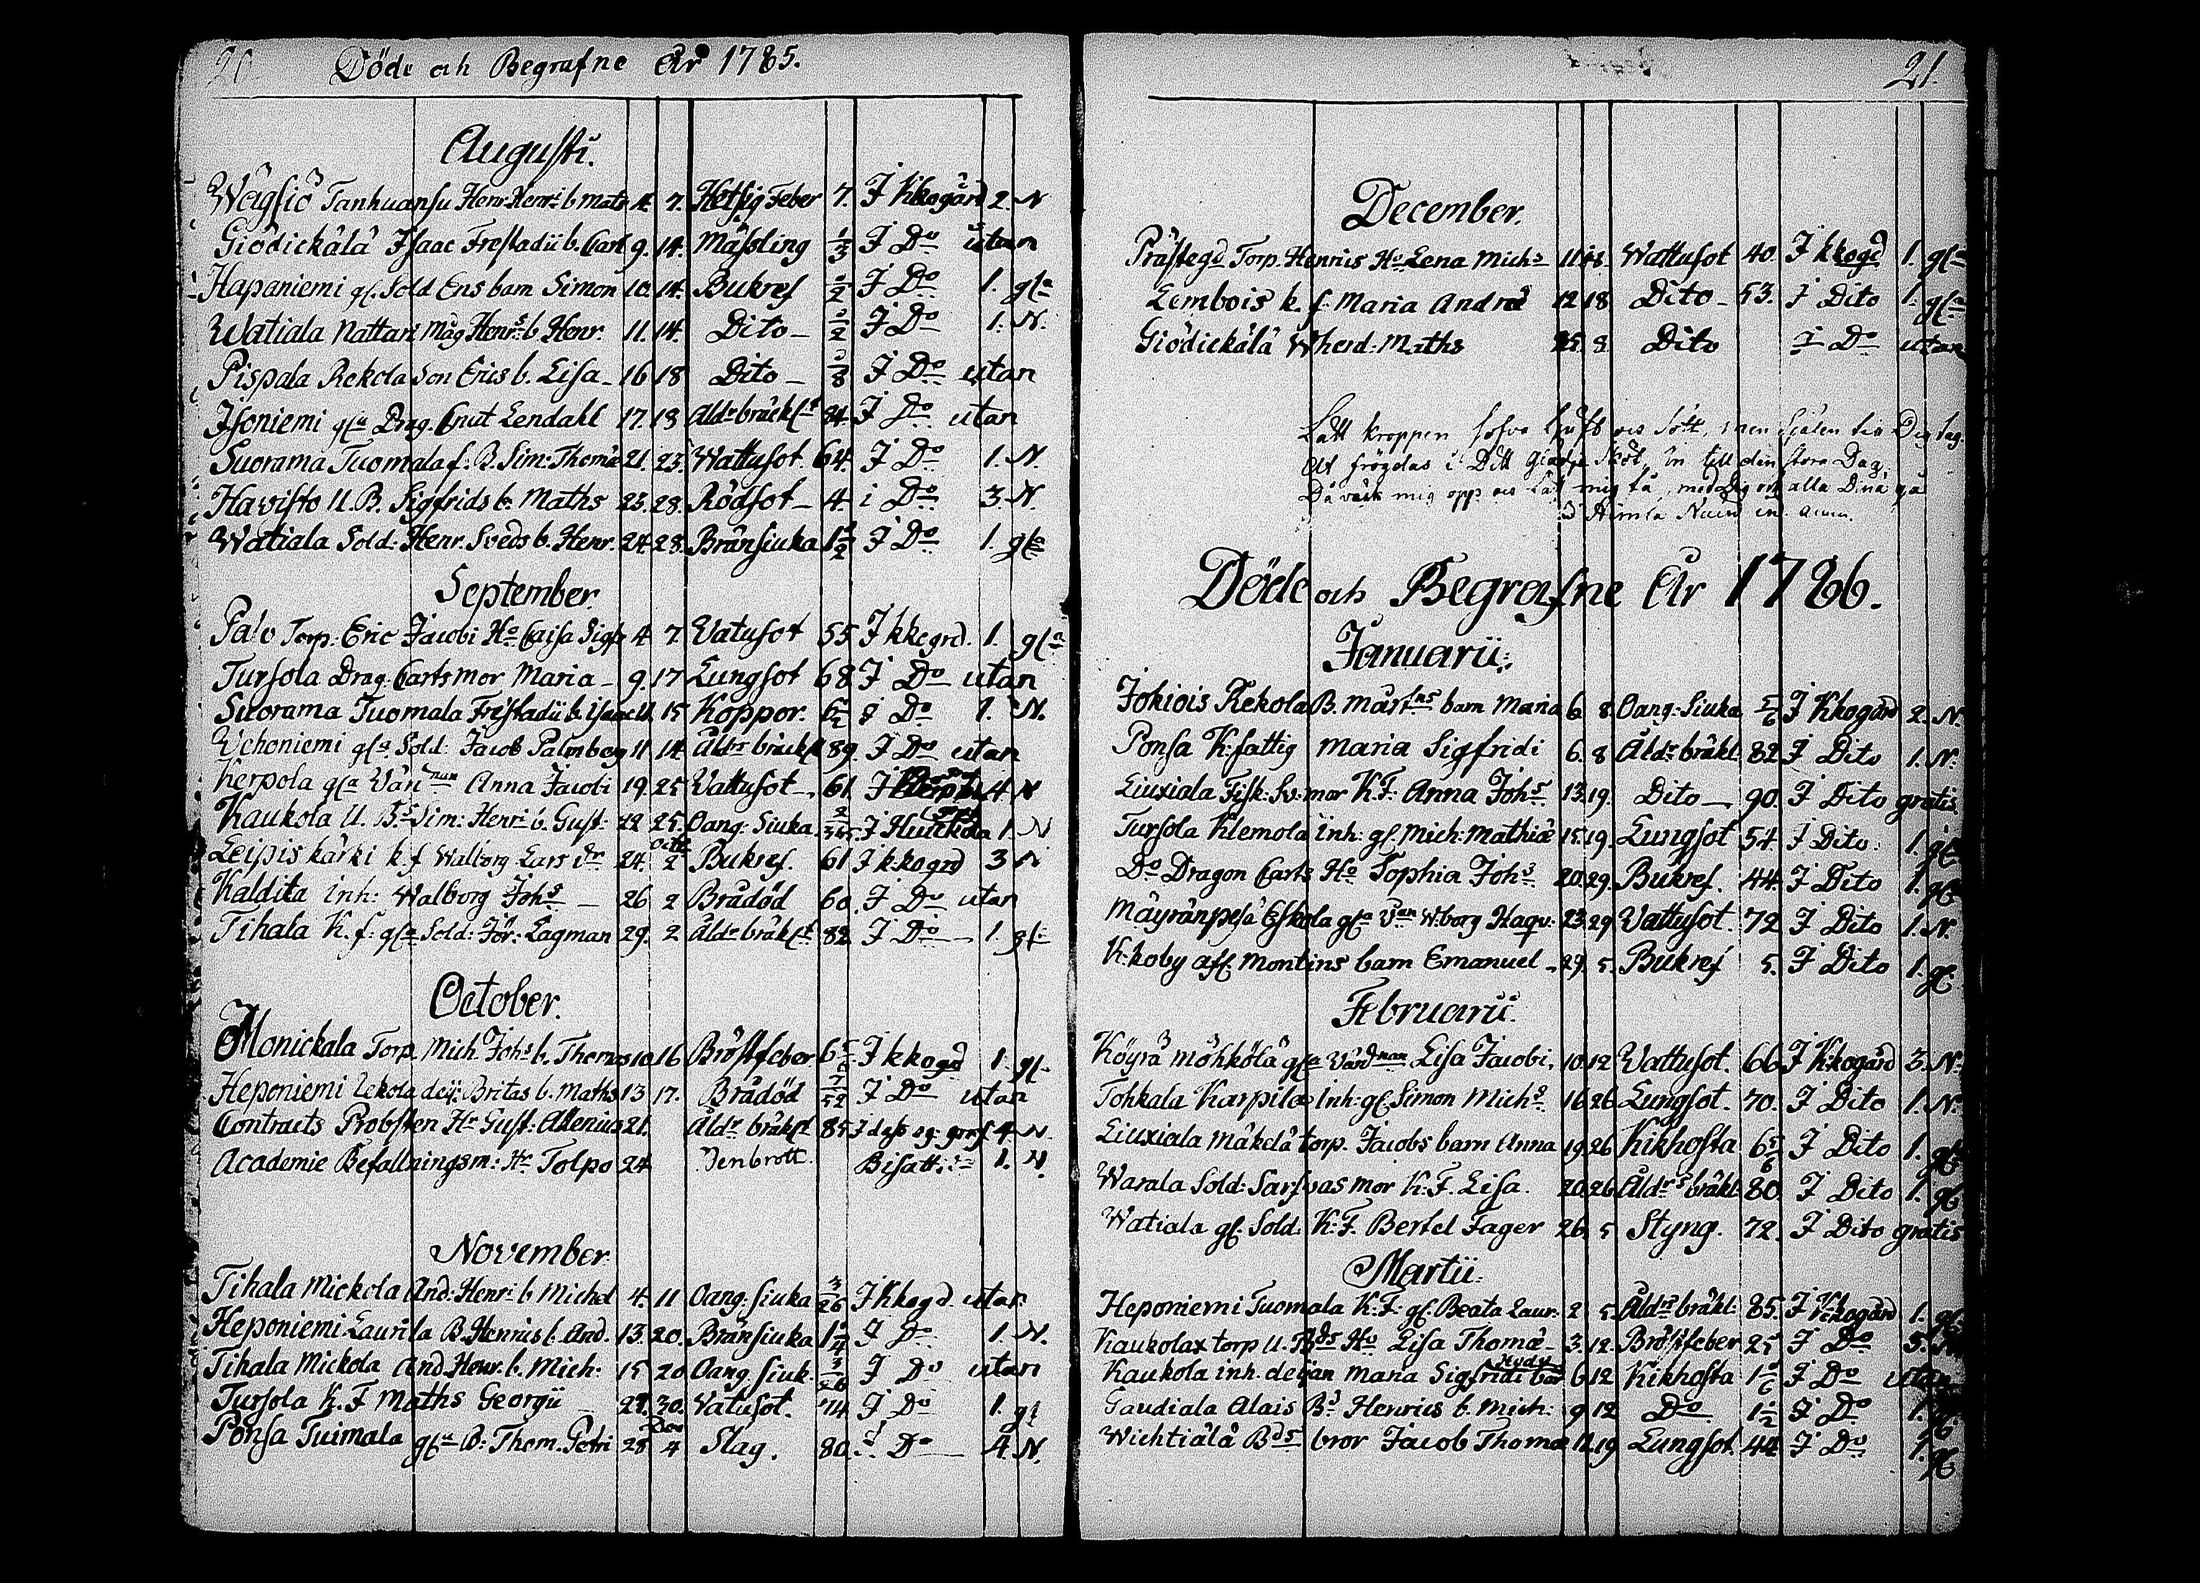 20. Döde och Begrafne År 1785.
Augusti.
Wägsiö Tanhuansu Henr Henr: b mats 4. 7. Hetsig Feber 7. I Kkogård 2. N
Giödickälä Isaac Frestadii b. Carl 9. 14. Mässling 1/3 I Do utan
Hapaniemi gl. Sold Ens barn Simon 10. 14. Bukref 1/2 I Do 1. gla
Watiala Nattari Måg Henrs b. Henr. 11. 14. Dito 1/2 I Do 1. N.
Pispala Rekola Son Erics b. Lisa 16 18 Dito I Do utan
Isoniemi gla Drag. Cnut Lendahl 17. 18 Åldrbräckl 84. I Do utan
Suorama Tuomala f: B. Sim: Thomæ 21. 23. Wattusot. 64. I Do 1. N.
Hawisto U. B. Sigfrids b. Maths 25. 28. Rödsot 4. i Do 3. N.
Watiala Sold: Henr. Sveds b. Henr. 24 28. Bränsiuka 1 1/2 I Do 1. gla
September.
Palo Torp: Eric Jacobi Ho Caisa Sigfr 4. 7. Vatusot 55 I kkogrd. 1. gla
Tursola Drag. Carts mor Maria 9. 17 Lungsot 68 I Do utan
Suorama Tuomala Frestadii b. Isaac 11. 15 Koppor. I Do 1. N.
Uchoniemi gla Sold: Jacob Palmberg 11 14 Åldrs bräckl 89. I Do utan
Kerpola gla Värdinnan Anna Jacobi 19. 25 Vattusot 61. I 4 N
Kaukola U. Bs Sim: Henr: b. Gust: 22 25 Oang: Siuka. I Huickola 1. N
Leipis kärki k f Walborg Lars dr 24. Octb 2 Bukref. 61 I kkogrd 3 N
Kaldita inh: Walborg Johs 26 2 Brådöd 60. I Do utan
Tihala K. f: gla Sold: Jör: Lagman 29. 2 Åldrbräkl 82 I Do 1. gl
October.
Monickala Torp. Mich Johs b. Thomas 10. 16. Bröstfeber I kkogd 1. gl
Heponiemi Uckola deij: Britas b. Maths 13 17. Brådöd 7/52 I Do utan
Contracts Probsten Hr Gust: Allenius 21. Åldr bräkl 85 I dess eg: graf 4 N
Academie Befallningsm: Hr Tolpo 24 Benbrott. Bisatt 1. N.
November.
Tihala Mickola And: Henr: b Michel 4. 11 Oang: siuka 3/26 I Kkogd utan
Heponiemi Laurila B. Henrics b. And. 13. 20. Bränsiuka 1 1/4 I Do 1. N.
Tihala Mickola And. Henr. b. Mich: 15 20 Oang. siuk. 3/26 I Do utan
Tursola K. F Maths Georgii 29. 30. Vatusot. 74 I Do 1. gl
Ponsa Tuimala gla B: Thom. Petri 28 Dec 4 Slag. 80. I Do 4. N.
21.
December.
Prästegd Torp. Henrics Ho Lena Michs 11. 18. Wattusot 40. I kkogd 1. gla
Lembois k. f. Maria Andræ 12 18 Dito 53. I Dito 1. gla
Giödickälä Wherd: Maths 25. 8 Dito I Do utan
Lått kroppen sofva liuft och sött, men Själen tin Dig tag.
At frögdas i Ditt Sköt, in till den stora Dag,
Då väck mig opp och Lät mig få, med Dig och alla Dina gå
I Himla
Döde och Begrafne År 1786.
Januarii:
Jokiois Rekola B. Martins barn Maria 6. 8. Oang: Siuka 5/6 I Kkogård 2. N.
Ponsa K: fattig Maria Sigfridi 6. 8 Åldr bräkl: 82. I Dito 1. N.
Liuxiala Fisk: Sv: mor K.F. Anna Johs 13. 19. Dito 90. I Dito gratis
Tursola Klemola inh: gl. Mich: Mathiæ 15. 19. Lungsot 54 I Dito. 1. gl
Do Dragon Carts Ho Sophia Johs 20. 29. Bukref. 44. I Dito 1. gl
Mäyränpesä Eskola gla Van Wborg Haqv: 23. 29 Vattusot. 72 I Dito 1. N.
K:koby afl. Montins barn Emanuel 29. 5. Bukref 5. I Dito 1. gl.
Februarii.
Köyrä Möhkölä gla Värdnnan Lisa Jacobi, 10. 12 Wattusot. 66 I K:kogård 3. N.
Tohkala Karpila inh: gl. Simon Michs 16. 26 Lungsot. 70. I Dito 1. N.
Liuxiala Mäkelä torp. Jacobs barn Anna 19. 26 Kikhosta 6 5/6 I Dito 1. gl
Warala Sold: Sarfvas mor K. F. Lisa. 20. 26 Åldrs bräkl: 80. I Dito 1. gl.
Watiala gl. Sold: K: F. Bertel Fager 26. 5 Styng. 72. I Dito gratis
Martii.
Heponiemi Tuomala K. F. gl. Beata Laur. 2 5. Åldrs bräkl: 85. I Kkogård 1. gl.
Kaukola x torp U. Bds Ho Lisa Thomæ 3. 12. Bröstfeber 25 I Do 5. N
Kaukola inh. deijan Maria Sigfridi bar Hedv 6. 12 Kikhosta I Do utan
Gaudiala Alais Bs Henrics b. Mich: 9 12 Do 1 1/2 I Do 1. gl
Wichtiälä Bds bror Jacob Thomæ 12. 19 Lungsot. 44. I Do 1. gl